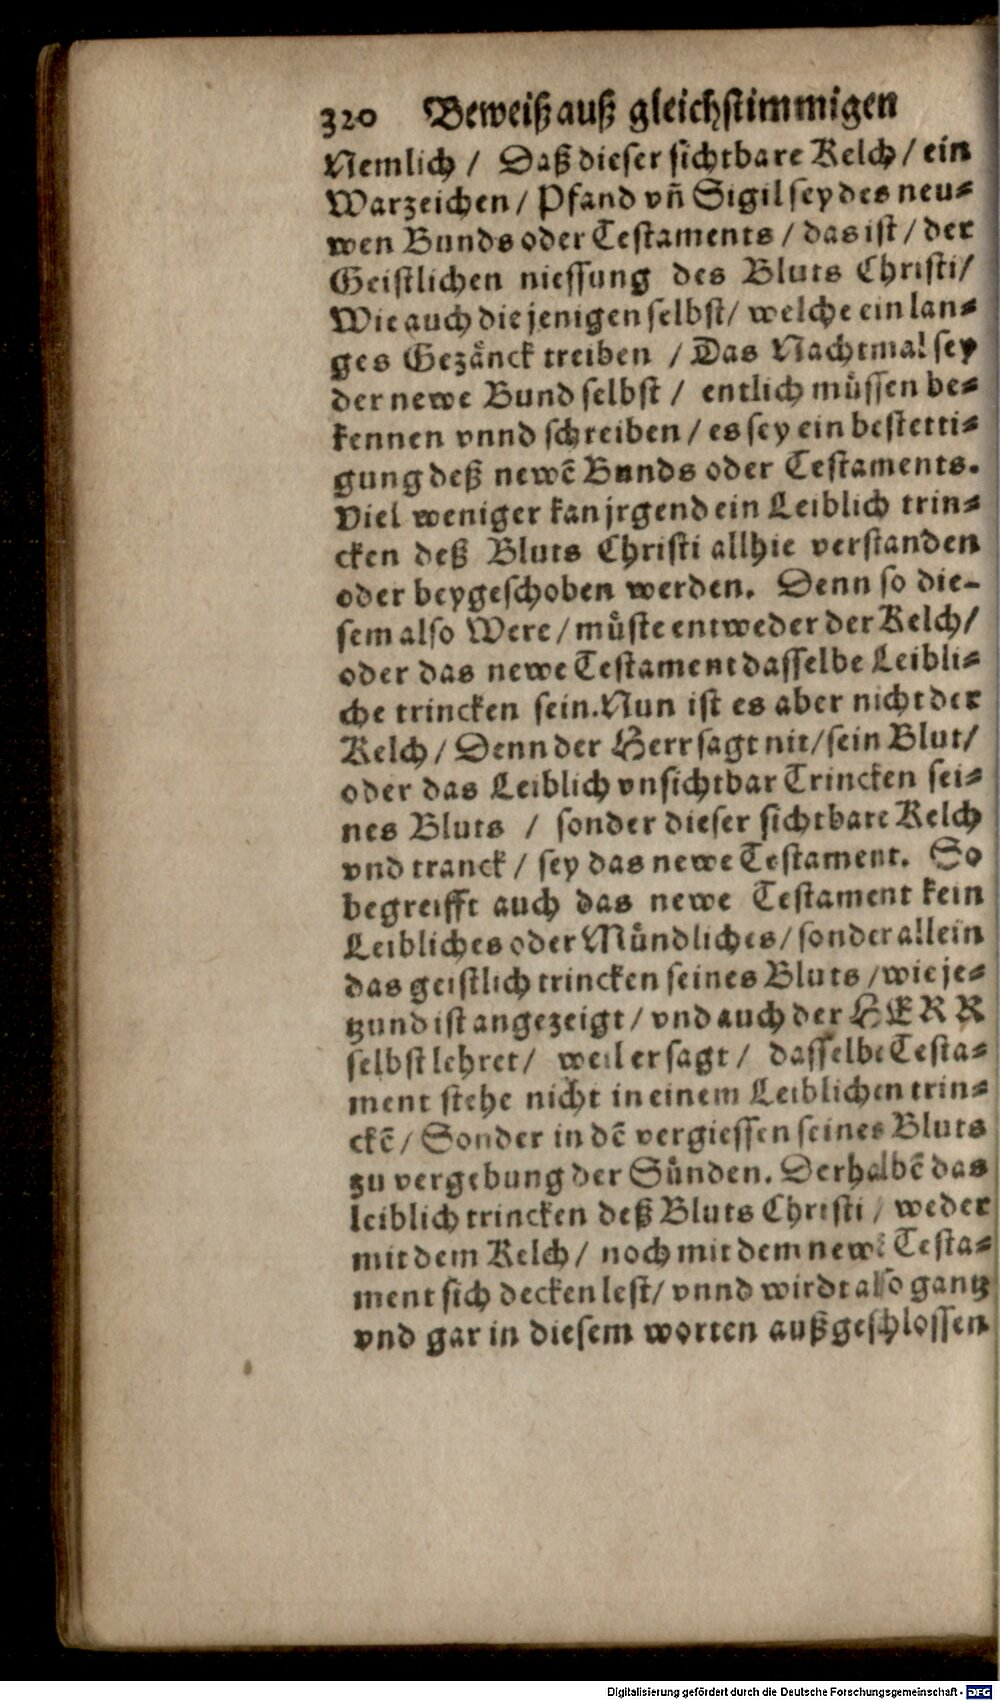 320 Beweiß auß gleichstimmigen
Nemlich / Daß dieser sichtbare Kelch / ein
Warzeichen / Pfand vn̄ Sigil sey des neu-
wen Bunds oder Testaments / das ist / der
Geistlichen niessung des Bluts Christi/
Wie auch die jenigen selbst/ welche ein lan-
ges Gezånck treiben / Das Nachtmal sey
der newe Bund selbst / entlich můssen be-
kennen vnnd schreiben / es sey ein bestetti-
gung deß newē Bunds oder Testaments.
Viel weniger kan jrgend ein Leiblich trin-
cken deß Bluts Christi allhie verstanden
oder beygeschoben werden. Denn so die-
sem also Were / můste entweder der Kelch/
oder das newe Testament dasselbe Leibli-
che trincken sein. Nun ist es aber nicht der
Kelch / Denn der Herr sagt nit/ sein Blut/
oder das Leiblich vnsichtbar Trincken sei-
nes Bluts / sonder dieser sichtbare Kelch
vnd tranck / sey das newe Testament. So
begreifft auch das newe Testament kein
Leibliches oder Můndliches / sonder allein
das geistlich trincken seines Bluts / wie je-
tzund ist angezeigt / vnd auch der HERR
selbst lehret / weil er sagt / dasselbe Testa-
ment stehe nicht in einem Leiblichen trin-
ckē / Sonder in dē vergiessen seines Bluts
zu vergebung der Sůnden. Derhalbē das
leiblich trincken deß Bluts Christi / weder
mit dem Kelch / noch mit dem newe Testa-
ment sich decken lest / vnnd wirdt also gantz
vnd gar in diesem worten außgeschlossen
Digitalisierung gefördert durch die Deutsche Forschungsgemeinschaft - DFG